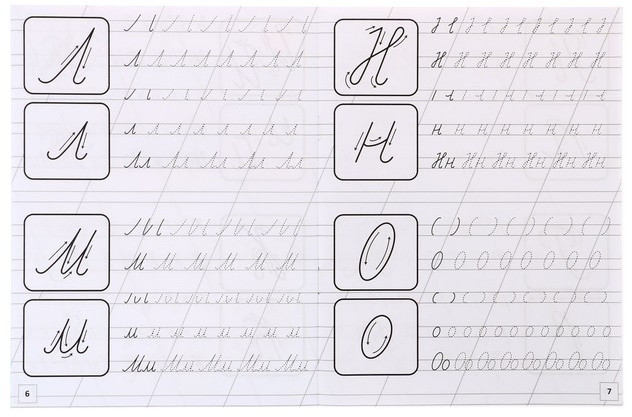 Л
Л Л Л Л Л Л Л Л
л
л л л л л л л л
Лл Лл Лл Лл Лл
М
М М М М М М
м
м м м м м м м м
Мм Мм Мм Мм Мм
6
Н
Н Н Н Н Н Н Н Н
н
н н н н н н н н
Нн Нн Нн Нн Нн Нн
О
О О О О О О О О
о
о о о о о о о о о о о о
Оо Оо Оо Оо Оо Оо Оо Оо
7